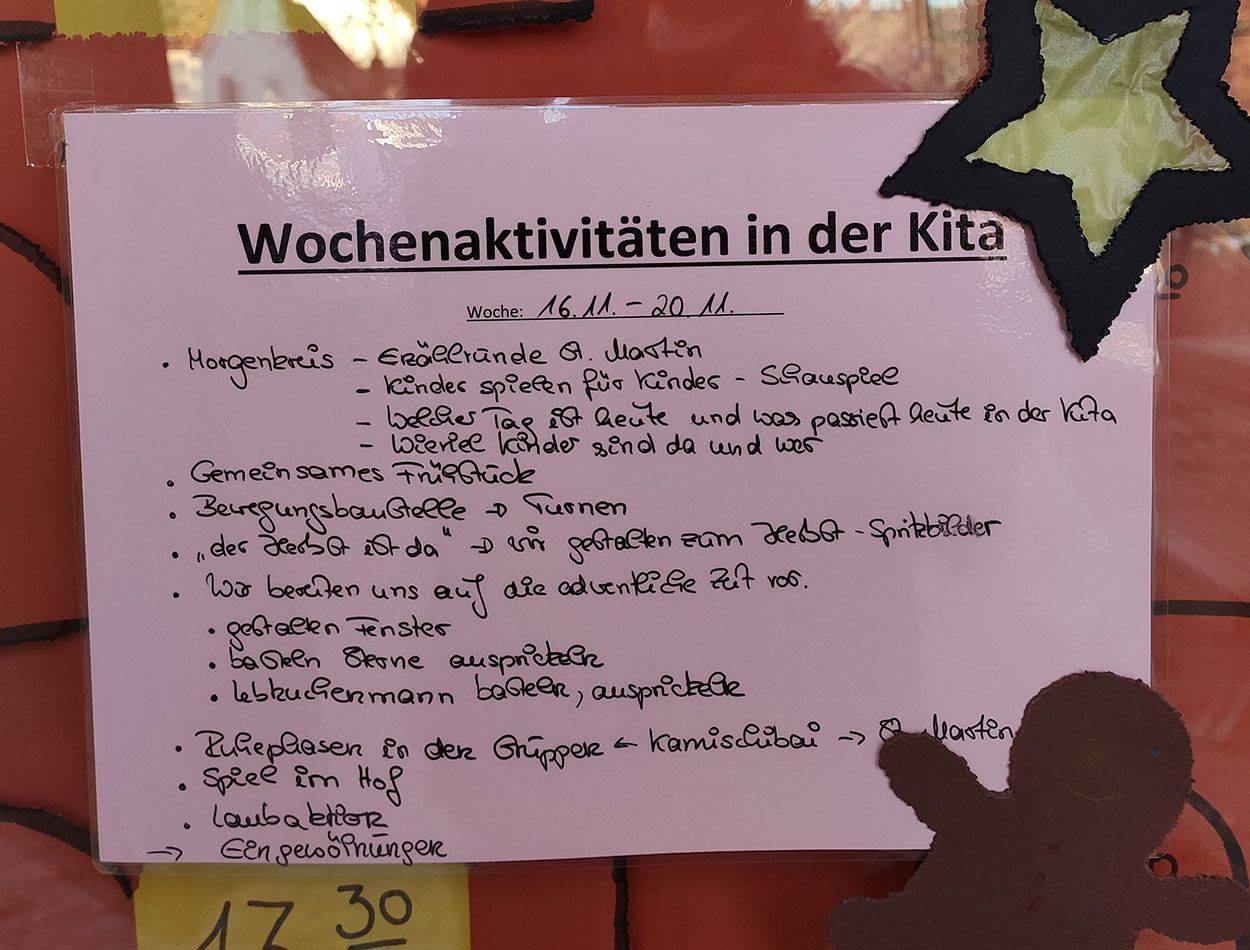 Wochenaktivitäten in der Kita
Woche: 16.11. – 20.11.
• Morgenkreis – Erzählrunde St. Martin
– Kinder spielen für Kinder – Schauspiel
– Welcher Tag ist heute und was passiert heute in der Kita
– Wieviel Kinder sind da und wer
• Gemeinsames Frühstück
• Bewegungsbaustelle → Turnen
• „der Herbst ist da“ → wir gestalten zum Herbst – Spritzbilder
• Wir bereiten uns auf die adventliche Zeit vor.
• gestalten Fenster
• basteln Sterne ausprickeln
• Lebkuchenmann basteln, ausprickeln
• Ruhephasen in den Gruppen ← Kamischibai → St. Martin
• Spiel im Hof
• Laubaktion
→ Eingewöhnungen
17 30